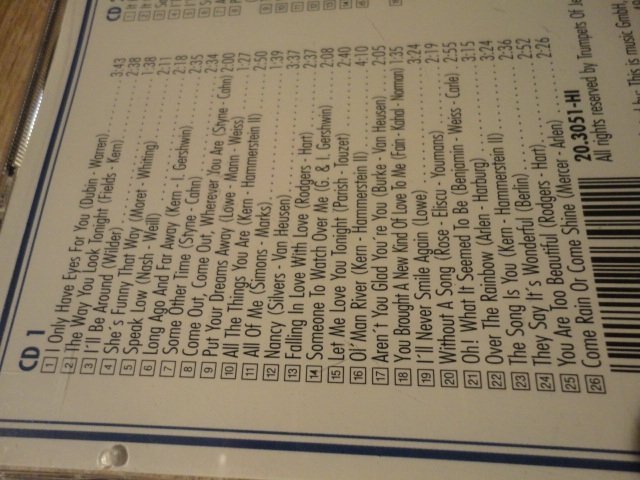 CD 1
1 I Only Have Eyes For You (Dubin - Warren) 3:43
2 The Way You Look Tonight (Fields - Kern) 2:38
3 I'll Be Around (Wilder) 1:38
4 She´s Funny That Way (Moret - Whiting) 2:11
5 Speak Low (Nash - Weill) 2:18
6 Long Ago And Far Away (Kern - I. Gershwin) 2:35
7 Some Other Time (Styne - Cahn) 2:34
8 Come Out, Come Out, Wherever You Are (Styne - Cahn) 2:00
9 Put Your Dreams Away (Lowe - Mann - Weiss) 1:27
10 All The Things You Are (Kern - Hammerstein II) 2:50
11 All Of Me (Simons - Marks) 1:39
12 Nancy (Silvers - Van Heusen) 3:37
13 Falling In Love With Love (Rodgers - Hart) 2:37
14 Someone To Watch Over Me (G. & I. Gershwin) 2:08
15 Let Me Love You Tonight (Parish - Touzet) 2:40
16 Ol´ Man River (Kern - Hammerstein II) 4:10
17 Aren´t You Glad You´re You (Burke - Van Heusen) 2:05
18 You Brought A New Kind Of Love To Me (Fain - Kahal - Norman) 1:35
19 I'll Never Smile Again (Lowe) 3:24
20 Without A Song (Rose - Eliscu - Youmans) 2:19
21 Oh! What It Seemed To Be (Benjamin - Weiss - Carle) 2:55
22 Over The Rainbow (Arlen - Harburg) 3:15
23 The Song Is You (Kern - Hammerstein II) 3:24
24 They Say It´s Wonderful (Berlin) 2:36
25 You Are Too Beautiful (Rodgers - Hart) 2:52
26 Come Rain Or Come Shine (Mercer - Arlen) 2:26
20.3051-HI
All rights reserved by Trumpets Of Je
This is music GmbH,
CD 2